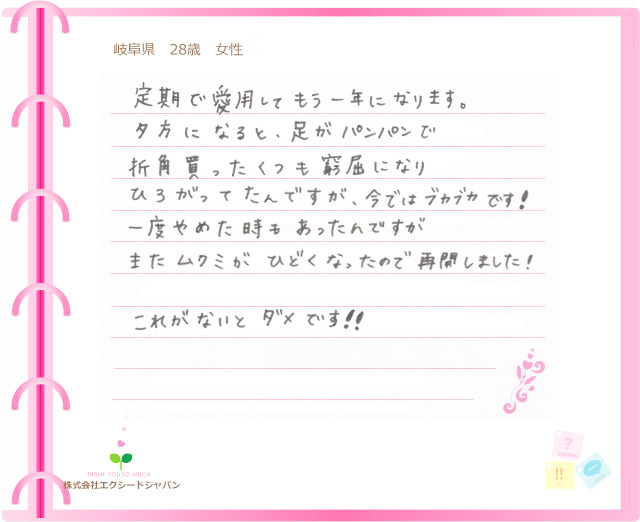 岐阜県 28歳 女性
定期で愛用してもう一年になります。
夕方になると、足がパンパンで
折角買ったくつも窮屈になり
ひろがってたんですが、今ではブカブカです!
一度やめた時もあったんですが
またムクミがひどくなったので再開しました!
これがないとダメです!!
THANK YOU SO MUCH
株式会社エクシードジャパン
?
!!